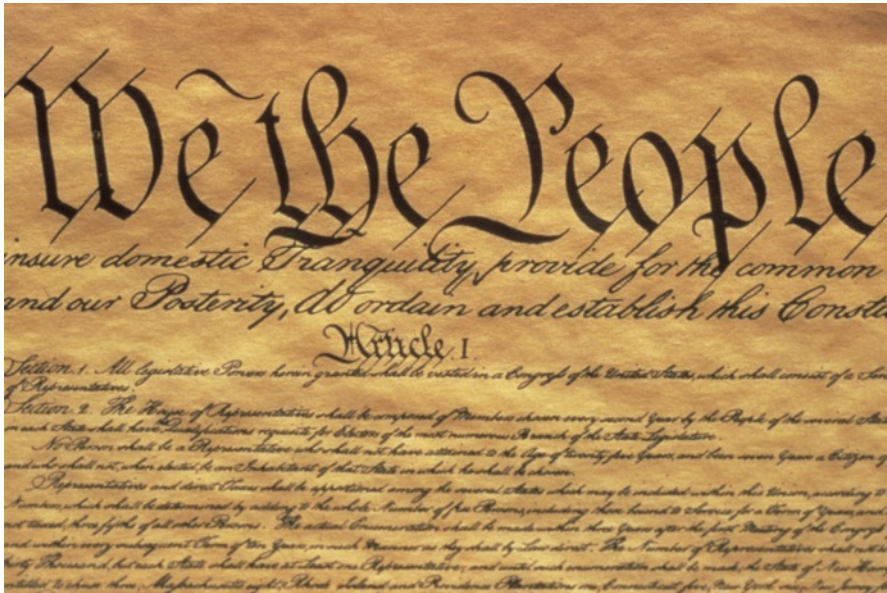 We the People
insure domestic Tranquility, provide for the common
and our Posterity, do ordain and establish this Consti
Article. I.
Section. 1. All legislative Powers herein granted shall be vested in a Congress of the United States, which shall consist of a Sen
of Representatives.
Section. 2. The House of Representatives shall be composed of Members chosen every second Year by the People of the several States
in each State shall have Qualifications requisite for Electors of the most numerous Branch of the State Legislature.
No Person shall be a Representative who shall not have attained to the Age of twenty five Years, and been seven Years a Citizen of
and who shall not, when elected, be an Inhabitant of that State in which he shall be chosen.
Representatives and direct Taxes shall be apportioned among the several States which may be included within this Union, according to
Numbers, which shall be determined by adding to the whole Number of free Persons, including those bound to Service for a Term of Years, and
not taxed, three fifths of all other Persons. The actual Enumeration shall be made within three Years after the first Meeting of the Congress
and within every subsequent Term of ten Years, in such Manner as they shall by Law direct. The Number of Representatives shall not
thirty Thousand, but each State shall have at Least one Representative; and until such enumeration shall be made, the State of New Ham
entitled to chuse three, Massachusetts eight, Rhode Island and Providence Plantations one, Connecticut five, New York six, New Jersey